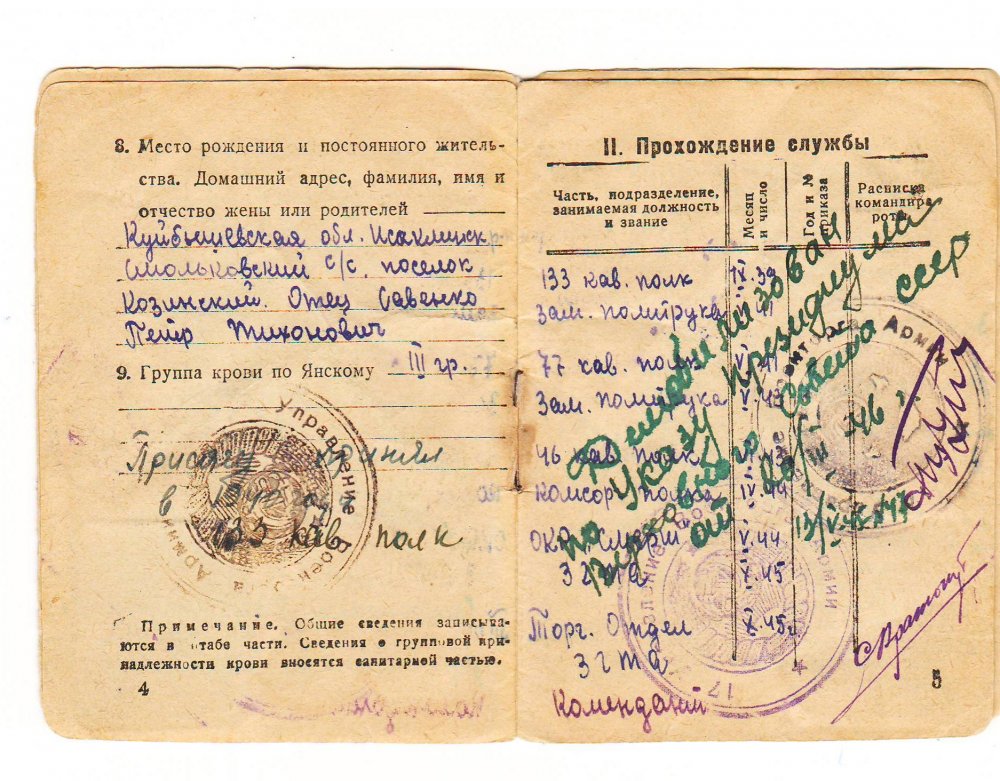 8. Место рождения и постоянного житель-
ства. Домашний адрес, фамилия, имя и
отчество жены или родителей
Куйбышевская обл. Исаклинск
Смольковский с/с. поселок
Козинский. Отец Савенко
Петр Тихонович
9. Группа крови по Янскому III гр.
Присягу принял
в
133 кав полк
Управление
Примечание. Общие сведения записыва-
ются в штабе части. Сведения о групповой при-
надлежности крови вносятся санитарной частью.
4
II. Прохождение службы
Часть, подразделение,
занимаемая должность
и звание
Месяц
и число
Год и №
приказа
Расписка
командира
роты
133 кав. полк IX.39
Зам. политрука 41
77 кав. полк V.41
Зам. политрука V.43
46 кав. полк
комсорг полка IV.44
ОКР Смерш V.44
3 г та X.45
Торг. Отдел X.45г
3 г та
Комендант
Демобилизован
по Указу Президиума
Верховного Совета СССР
46 г.
5